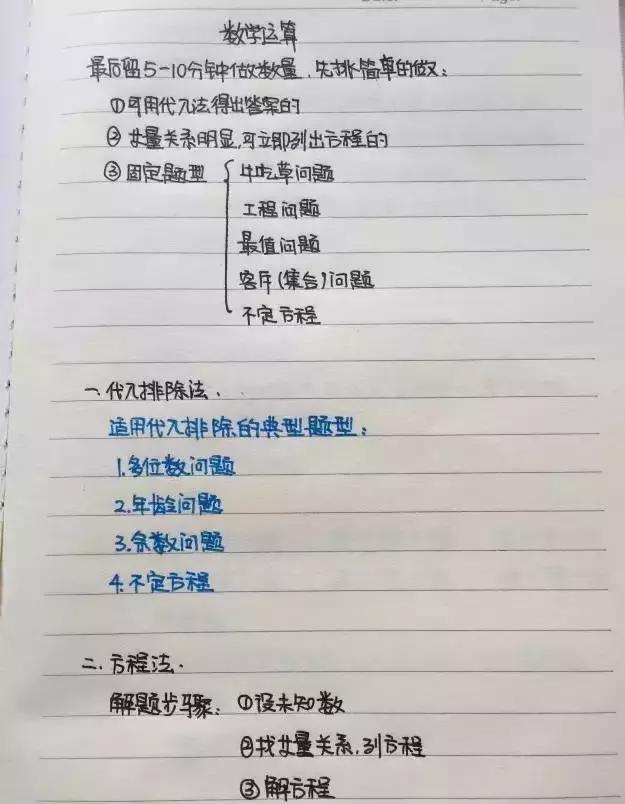 数学运算
最后留5-10分钟做数量,先挑简单的做:
①可用代入法得出答案的
②等量关系明显,可立即列出方程的
③固定题型 牛吃草问题
工程问题
最值问题
容斥(集合)问题
不定方程
一.代入排除法.
适用代入排除的典型题型:
1.多位数问题
2.年龄问题
3.余数问题
4.不定方程
二.方程法.
解题步骤:①设未知数
②找等量关系,列方程
③解方程